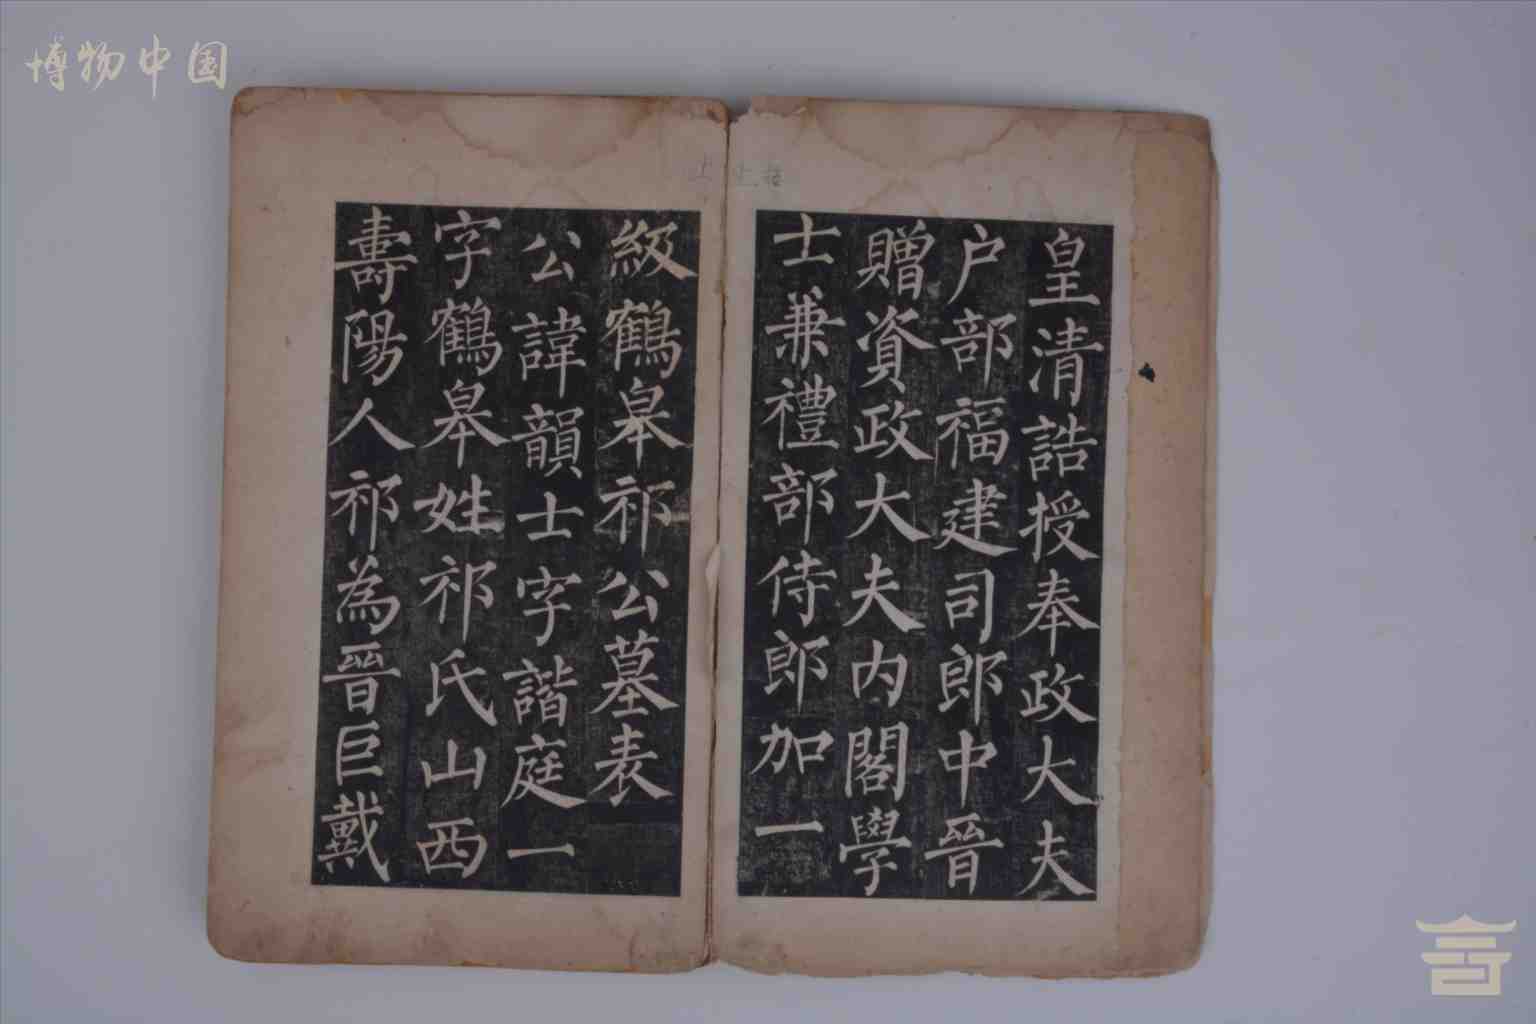 博物中国
皇清誥授奉政大夫
户部福建司郎中晉
贈資政大夫内閣學
士兼禮部侍郎加一
級鶴皋祁公墓表
公諱韻士字諧庭一
字鶴皋姓祁氏山西
壽陽人祁為晉巨戴